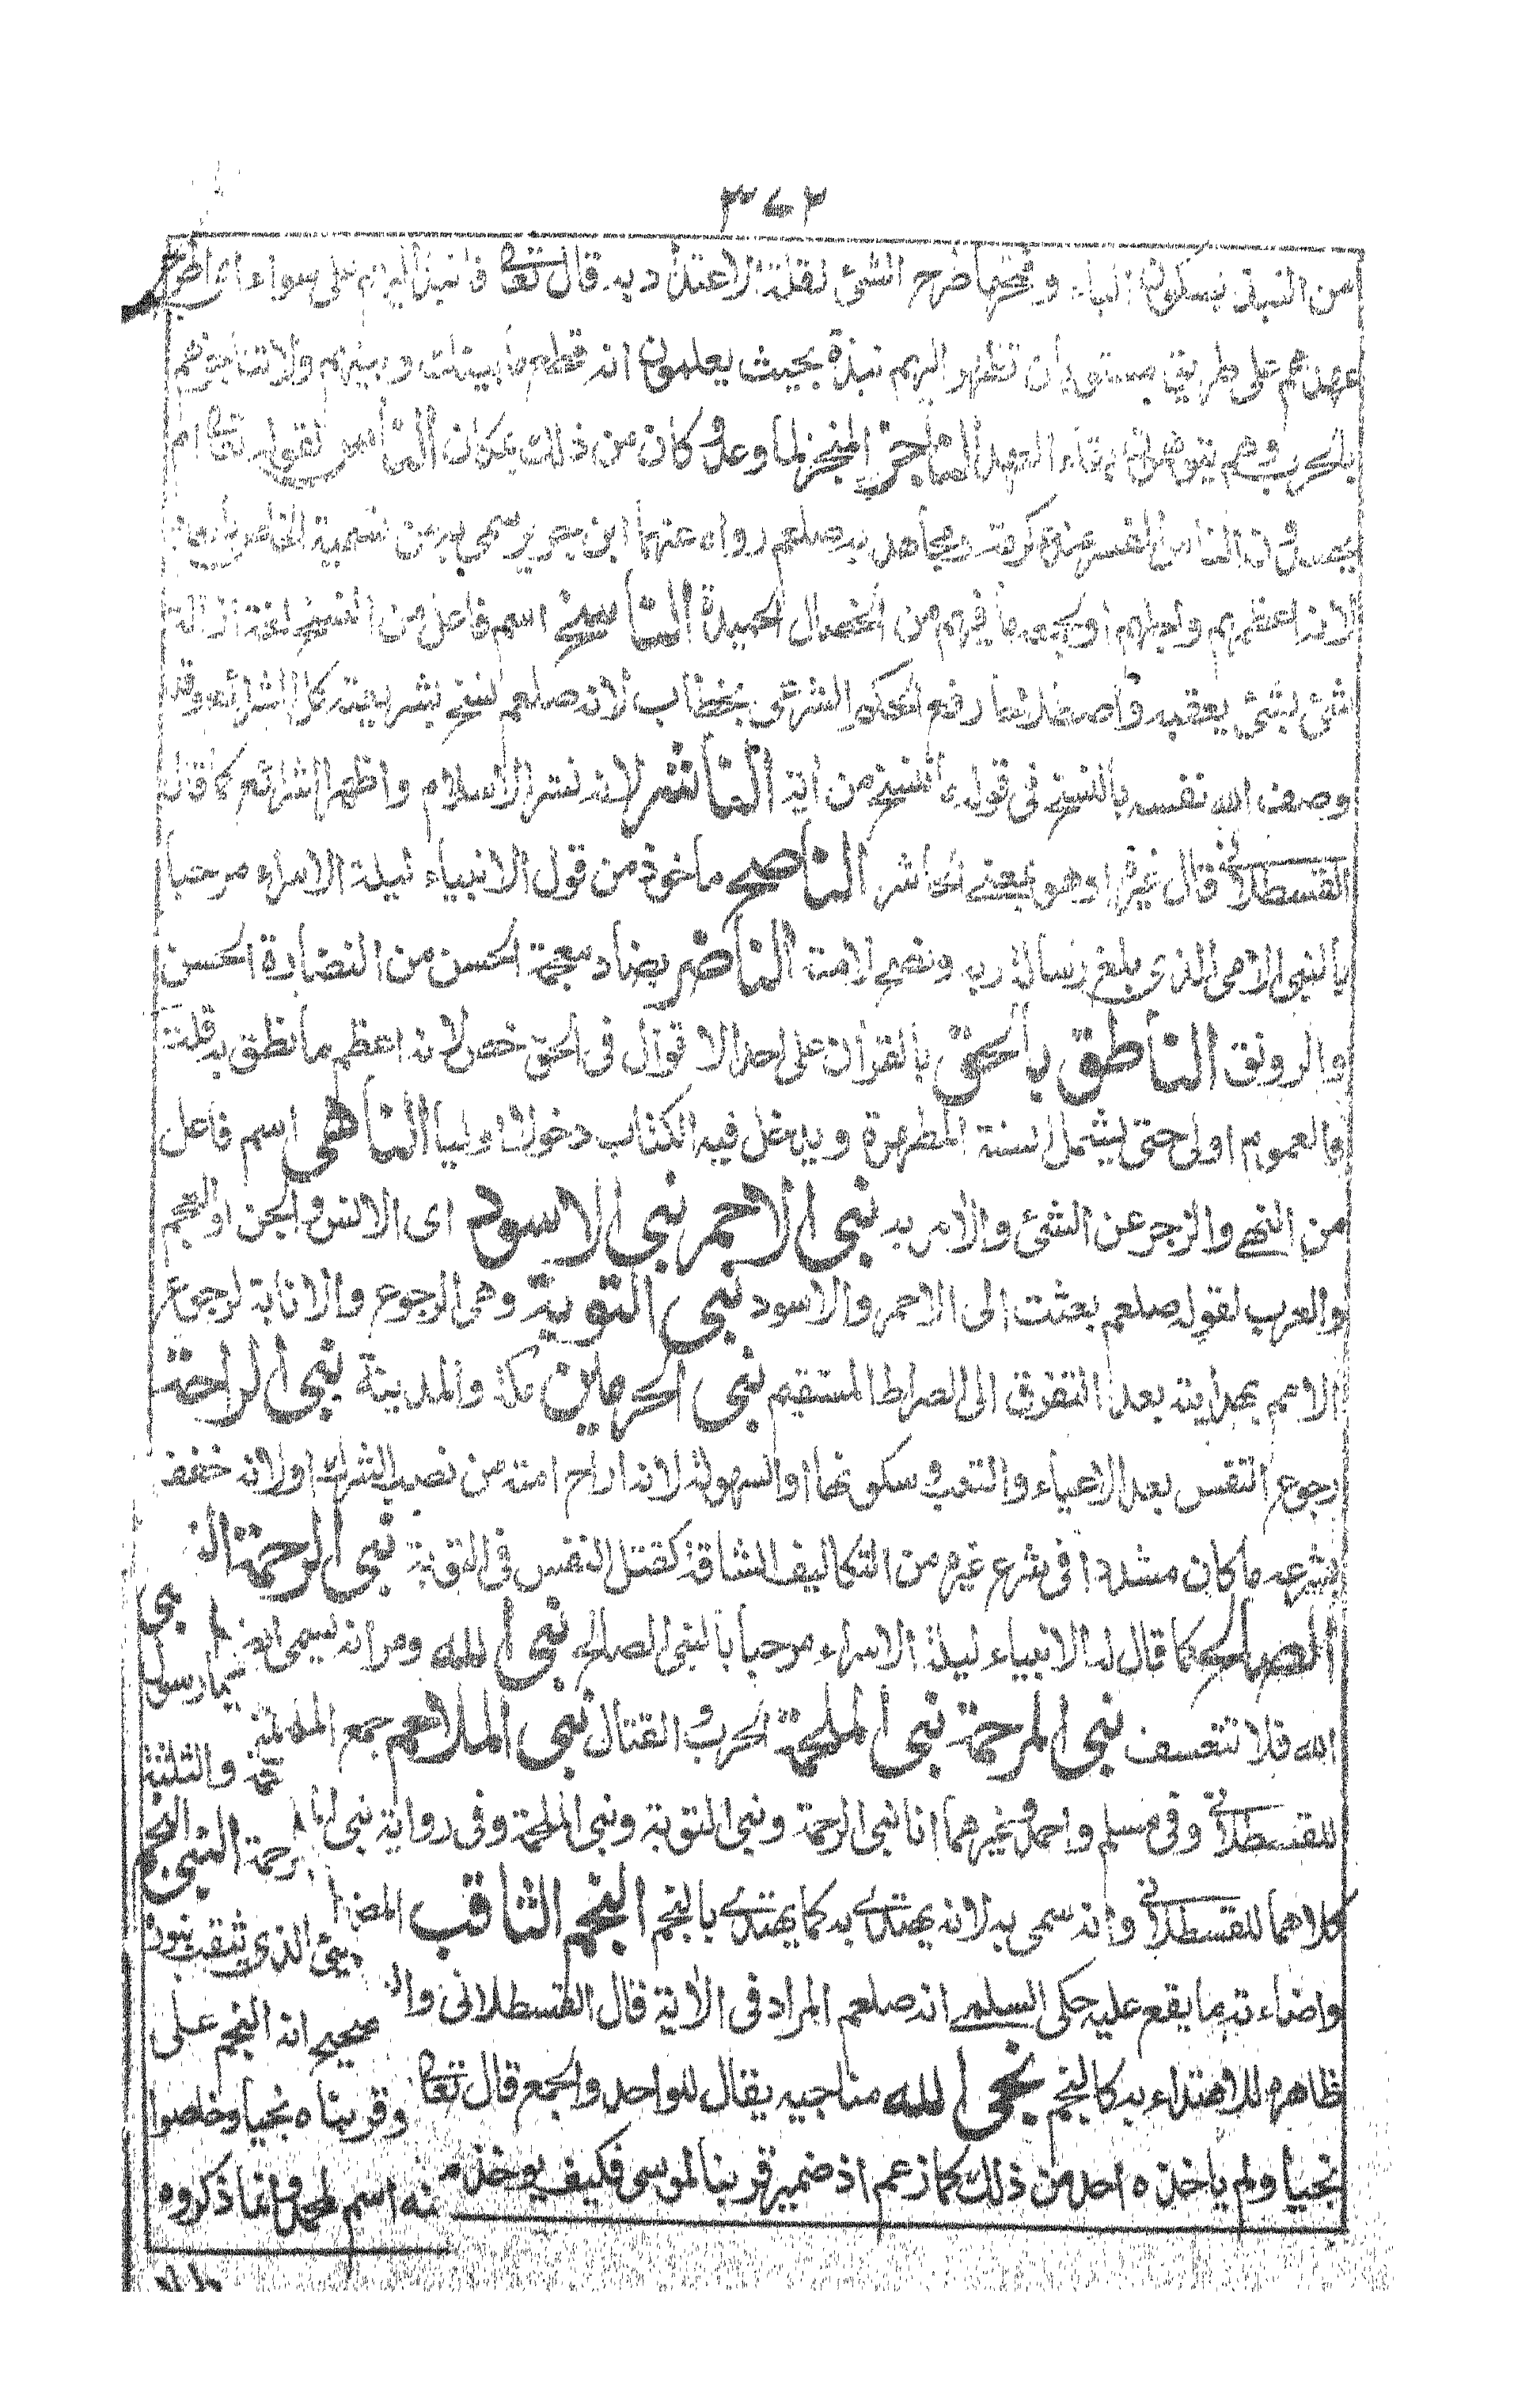 ٣٧٣
من النبذ بسكون الباء وفتحها طرح الشئ لقلة الاعتداد به قال تعا فانبذ اليهم على سواء اى اطرح
عهدهم على طريق مستو بأن تظهر اليهم نبذة بحيث يعلمون انه قطع ما بينك وبينهم ولا تناجزهم
بالحرب وهم يتوهمون بقاء العهد الناجز المنجز لما وعد وكان من ذلك بمكان الناس لقوله تعا ام
يحسدون الناس المفسر عند عكرمة ومجاهد به صلعم رواه عنهما ابن جرير سمى به من تسمية الخاص باسم
لانه اعظمهم واجلهم او لجمعه ما فيهم من الخصال الحميدة الناسخ اسم فاعل من النسخ لغة ازالة
شئ بشئ يعقبه واصطلاحا رفع الحكم الشرعى بخطاب لانه صلعم نسخ بشريعته كل الشرائع وقد
وصف الله نفسه بالنسخ فى قوله ما ننسخ من اية الناشر لانه نشر الاسلام واظهر الشرائع كما قاله
القسطلانى قال غيره او هو بمعنى الحاشر الناصح ماخوذ من قول الانبياء ليلة الاسراء مرحبا
بالنبى الامى الذى بلغ رسالة ربه ونصح لامته الناضر بضاد معجمة الحسن من النضارة الحسن
والرونق الناطق بالحق بالقرأن على احد الاقوال فى الحق خص لانه اعظم ما نطق به قلت
فالعموم اولى حتى يشمل السنة المطهرة ويدخل فيه الكتاب دخولا اوليا الناهى اسم فاعل
من النهى والزجر عن الشئ والامر به نبى الاحمر نبى الاسود اى الانس والجن او العجم
والعرب لقوله صلعم بعثت الى الاحمر والاسود نبى التوبة وهى الرجوع والانابة لرجوع
الامم بهدايته بعد التفرق الى الصراط المستقيم نبى الحرمين مكة والمدينة نبى الراحة
رجوع النفس بعد الاعياء والتعب وسكونها او السهولة لانه اراح امته من نصب الشرك او لانه خفف
بشرعه ما كان مشددا فى شرع غيره من التكاليف الشاقة كقتل النفس فى التوبة نبى الرحمة النبى
الصالح كما قال له الانبياء ليلة الاسراء مرحبا بالنبى الصالح نبى الله ومر انه يسمى ايضا رسول
الله فلا تتعسف نبى المرحمة نبى الملحمة الحرب والقتال نبى الملاحم جمع الملحمة والثلثة
للقسطلانى وفى مسلم واحمد وغيرهما انا نبى الرحمة ونبى التوبة ونبى الملحمة وفى رواية نبى المرحمة النبى النجم
كلاهما للقسطلانى وانه سمى به لانه يهتدے به كما يهتدے بالنجم النجم الثاقب المضئ الذى يثقب بنوره
واضاءته ما يقع عليه حكى السلمے انه صلعم المراد فى الاية قال القسطلانى والصحيح انه النجم على
ظاهره للاهتداء به كالنجم نجى الله مناجيه يقال للواحد والجمع قال تعا وقربناه نجيا وخلصوا
نجيا ولم ياخذه احد من ذلك كما زعم اذ ضمير قربنا لموسى فكيف يوخذ منه اسم لمحمد وانما ذكروه